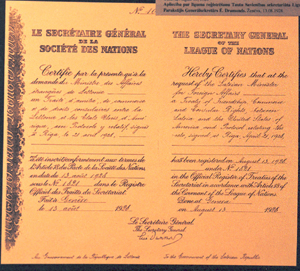 Nº 18
LE SECRÉTAIRE GÉNÉRAL
DE LA
SOCIÉTÉ DES NATIONS
Certifie par la présente qu'à la
demande du Ministre des Affaires
étrangères de Lettonie
un Traité d'amitié, de commerce
et de droits consulaires entre la
Lettonie et les Etats-Unis d'Amé-
rique, signé à
Riga, le 20 avril 1928,
a été inscrit conformément aux termes de
l'Article 18 du Pacte de la Société des Nations
en date du 13 août 1928
sous le Nº 1821 dans le Registre
Officiel des Traités du Secrétariat
Fait à Genève
le 13 août 1928
THE SECRETARY GENERAL
OF THE
LEAGUE OF NATIONS
Hereby Certifies that at the
request of the Latvian Minister
for Foreign Affairs
a Treaty of Friendship, Commerce
and Consular Rights between
Latvia and the United States of
America and Protocol relating there-
to, signed at Riga, April 20, 1928,
has been registered on August 13, 1928
under Nº 1821
in the Official Register of Treaties of the
Secretariat in accordance with Article 18 of
the Covenant of the League of Nations
Done at Geneva
on August 13 1928
Le Secrétaire Général
The Secretary General
Eric Drummond
Au Gouvernement de la République de Lettonie
To the Government of the Latvian Republic